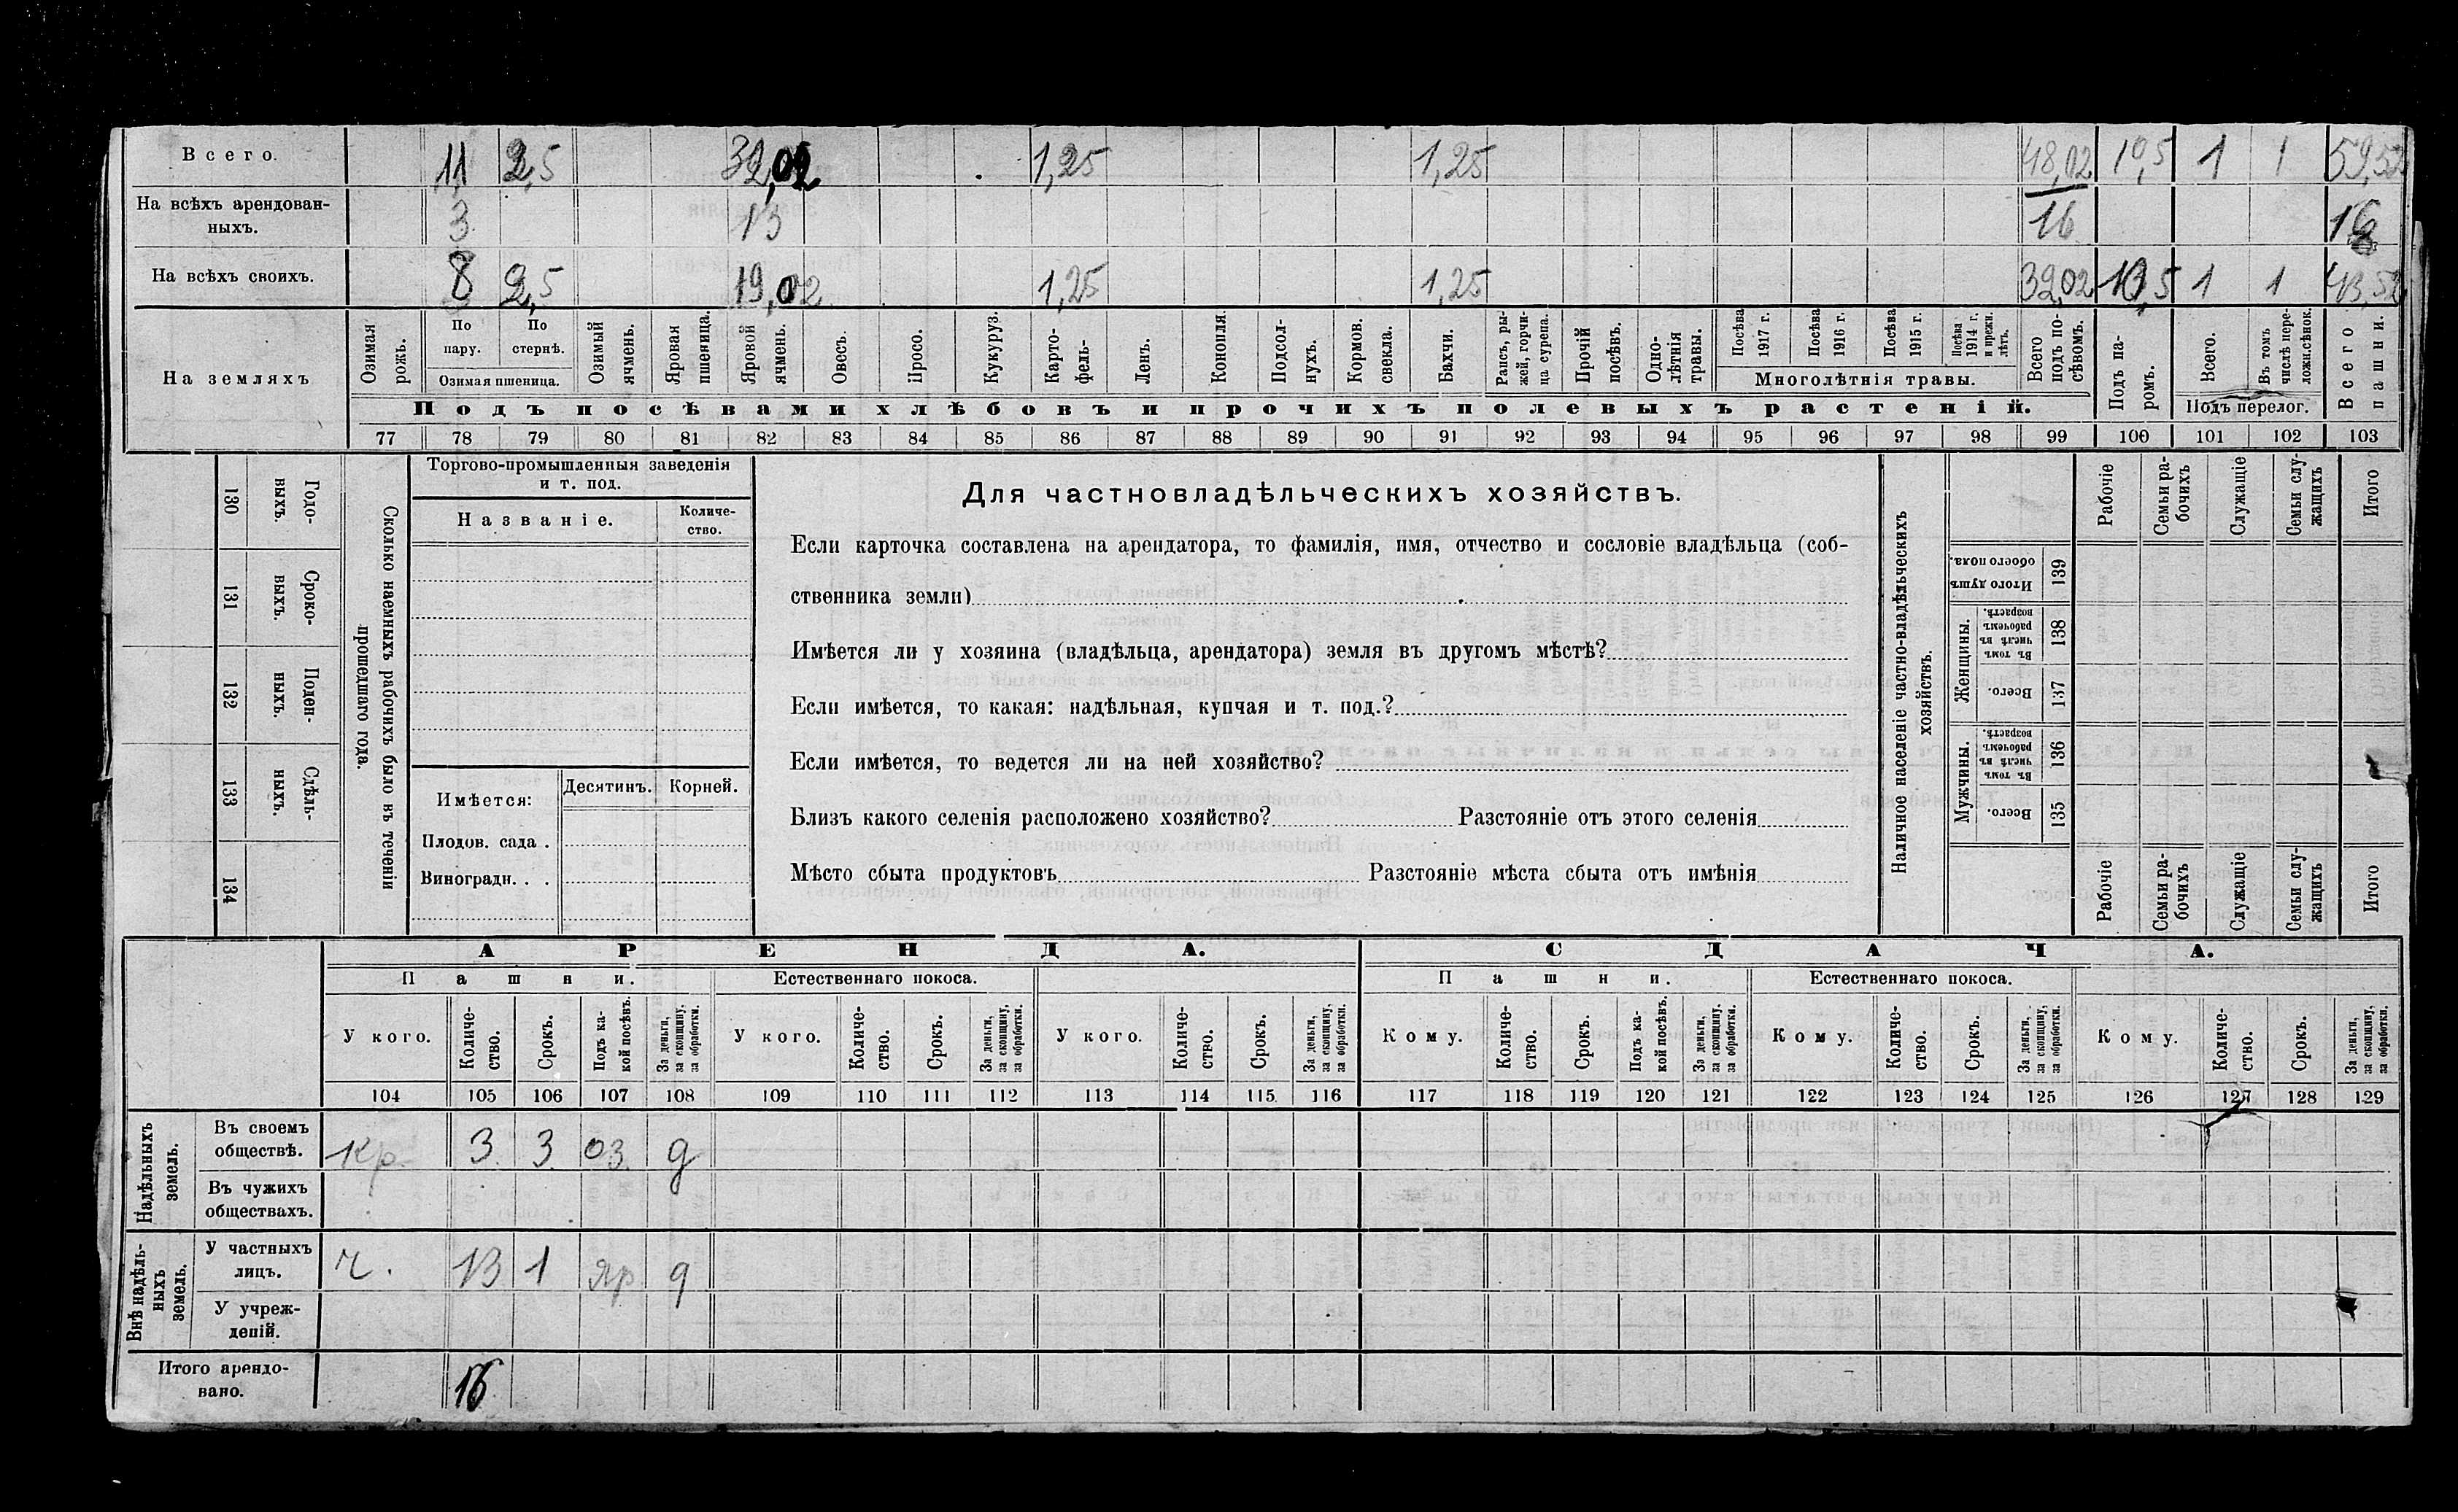 Всего. 11 2,5 32,02 1,25 1,25 48,02 10,5 1 1 59,52
На всѣхъ арендован-
ныхъ. 3 13 16 16
На всѣхъ своихъ. 8 2,5 19,02 1,25 1,25 32,02 10,5 1 1 43,52
На земляхъ
Озимая рожь.
По пару.
По стернѣ.
Озимая пшеница.
Озимый ячмень.
Яровая пшеница.
Яровой ячмень.
Овесъ.
Просо.
Кукуруз.
Карто-
фель-
Ленъ.
Конопля.
Подсол-
нухъ.
Кормов.
свекла.
Бахчи.
Рапсъ, ры-
жей, горчи-
ца сурепа.
Прочій
посѣвъ.
Одно-
лѣтнія
травы.
Посѣва
1917 г.
Посѣва
1916 г.
Посѣва
1915 г.
Посѣва
1914 г.
и прежн.
лѣтъ.
Многолѣтнія травы.
Всего
подъ по-
сѣвомъ.
Подъ па-
ромъ.
Всего.
Въ томъ
числѣ пере-
ложн.сѣнок.
Подъ перелог.
Всего
пашни.
Подъ посѣвами хлѣбовъ и прочихъ полевыхъ растеній.
77 78 79 80 81 82 83 84 85 86 87 88 89 90 91 92 93 94 95 96 97 98 99 100 101 102 103
130
Годо-
выхъ.
131
Сроко-
выхъ.
132
Поден-
ныхъ.
133
Сдѣль-
ныхъ.
134
Сколько наемныхъ рабочихъ было въ теченіи
прошедшаго года.
Торгово-промышленныя заведенія
и т. под.
Названіе.
Количе-
ство.
Имѣется:
Десятинъ. Корней.
Плодов. сада .
Виноградн. . .
Для частновладѣльческихъ хозяйствъ.
Если карточка составлена на арендатора, то фамилія, имя, отчество и сословіе владѣльца (соб-
ственника земли)
Имѣется ли у хозяина (владѣльца, арендатора) земля въ другомъ мѣстѣ?
Если имѣется, то какая: надѣльная, купчая и т. под.?
Если имѣется, то ведется ли на ней хозяйство?
Близъ какого селенія расположено хозяйство? Разстояніе отъ этого селенія
Мѣсто сбыта продуктовъ Разстояніе мѣста сбыта отъ имѣнія
Наличное населеніе частно-владѣльческихъ
хозяйствъ.
Рабочіе
Семьи ра-
бочихъ
Служащіе
Семьи слу-
жащихъ
Итого
Итого душъ
обоего пола.
139
Женщины.
Въ томъ
числѣ въ
рабочемъ
возрастѣ.
138
Всего.
137
Мужчины.
Въ томъ
числѣ въ
рабочемъ
возрастѣ.
136
Всего.
135
Рабочіе
Семьи ра-
бочихъ
Служащіе
Семьи слу-
жащихъ
Итого
АРЕНДА. СДАЧА.
Пашни. Естественнаго покоса. Пашни. Естественнаго покоса.
У кого.
Количе-
ство.
Срокъ.
Подъ ка-
кой посѣвъ.
За деньги,
за скопщину,
за обработки.
У кого.
Количе-
ство.
Срокъ.
За деньги,
за скопщину,
за обработки.
У кого.
Количе-
ство.
Срокъ.
За деньги,
за скопщину,
за обработки.
Кому.
Количе-
ство.
Срокъ.
Подъ ка-
кой посѣвъ.
За деньги,
за скопщину,
за обработки.
Кому.
Количе-
ство.
Срокъ.
За деньги,
за скопщину,
за обработки.
Кому.
Количе-
ство.
Срокъ.
За деньги,
за скопщину,
за обработки.
104 105 106 107 108 109 110 111 112 113 114 115 116 117 118 119 120 121 122 123 124 125 126 127 128 129
Надѣльныхъ
земель.
Въ своемъ
обществѣ. Кр. 3 3 оз. д
Въ чужихъ
обществахъ.
Внѣ надѣль-
ныхъ
земель.
У частныхъ
лицъ. ч. 13 1 яр д
У учреж-
деній.
Итого арендо-
вано. 16